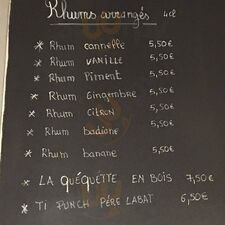 Rhums arrangés 4cl
* Rhum cannelle 5,50€
* Rhum VANILLE 5,50€
* Rhum Piment 5,50€
* Rhum Gingembre 5,50€
* Rhum CITRON 5,50€
* Rhum badiane 5,50€
* Rhum banane 5,50€
* LA QUÉQUETTE EN BOIS 7,50€
* TI PUNCH PÈRE LABAT 6,50€